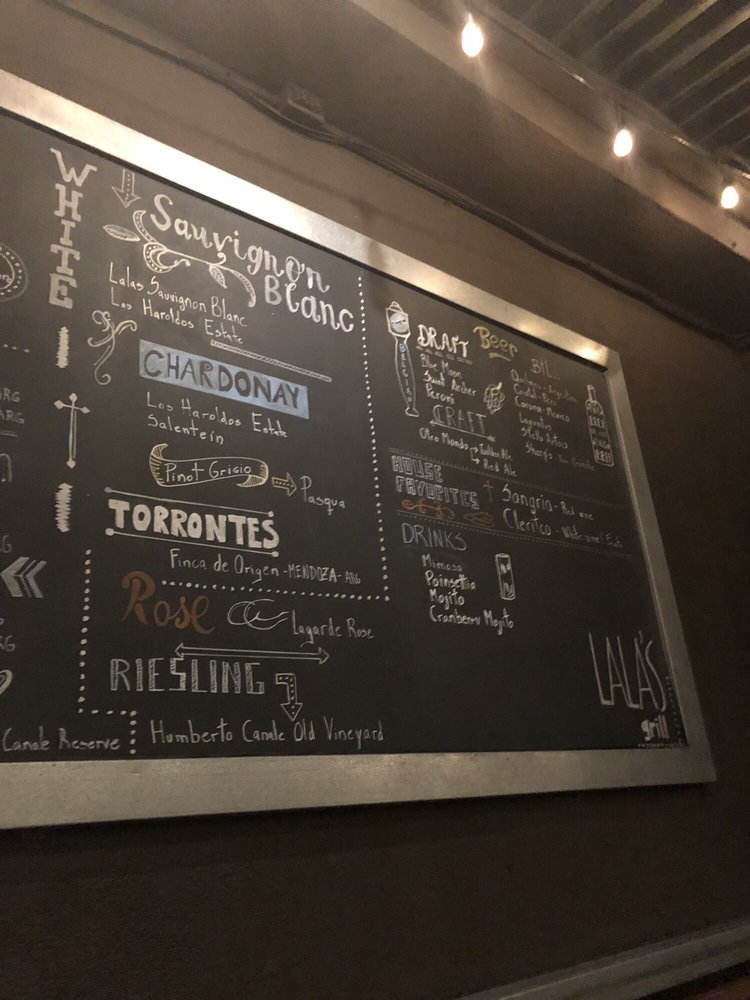 WHITE
Sauvignon
Blanc
Lalas Sauvignon Blanc
Los Haroldos Estate
CHARDONAY
Los Haroldos Estate
Salentein
Pinot Grigio
Pasqua
TORRONTES
Finca de Origen - MENDOZA - ARG
ROSE
Lagarde Rose
RIESLING
Humberto Canale Old Vineyard
ARG
Canale Reserve
DRAFT Beer BTL
Blue Moon
Peroni
CRAFT
Otro Mundo
Red Ale
Quilmes - Argentina
Corona - Mexico
Lagunitas
Stella Artois
HOUSE
FAVORITES
Sangria - Red wine
Clerico - White wine
DRINKS
Mimosa
Poinsettia
Mojito
Cranberry Mojito
LALA'S
grill